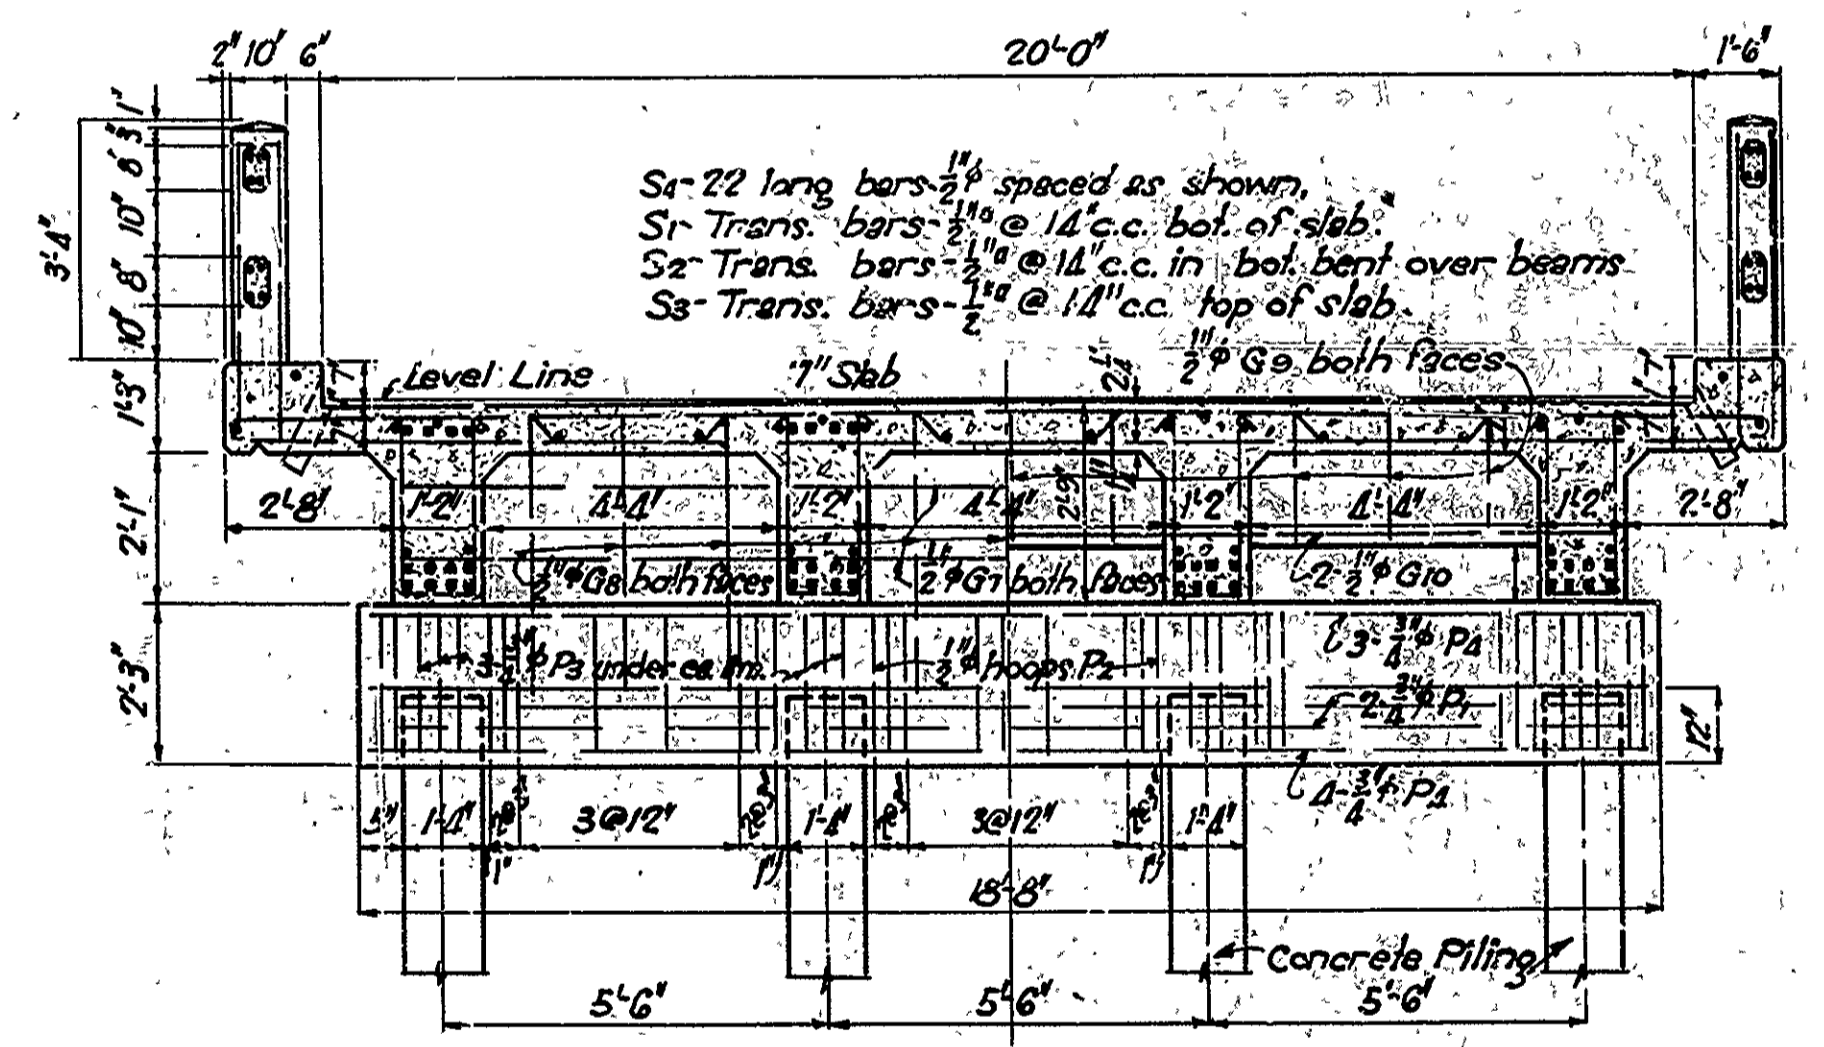 2" 10" 6" 20'-0" 1'-6"
1"
3"
8"
10"
8"
10"
3'-4"
1'-3"
2'-1"
2'-3"
S4-22 long bars-1/2"ϕ spaced as shown.
S1- Trans. bars-1/2"▫ @ 14" c.c. bot. of slab.
S2- Trans. bars-1/2"▫ @ 14" c.c. in bot. bent over beams
S3- Trans. bars-1/2"▫ @ 14" c.c. top of slab.
Level Line 7" Slab 1/2"ϕ G9 both faces
7" 7" 7" 7"
2'-8" 1'-2" 4'-4" 1'-2" 4'-4" 2'-9" 1'-2" 4'-4" 1'-2" 2'-8"
1/2"ϕ G8 both faces 1/2"ϕ G7 both faces 2-1/2"ϕ G10
3-3/4"ϕ P4
P3 under ea. 1/2"ϕ hoops P2
2-3/4"ϕ P1
12"
4-3/4"ϕ P4
1'-4" 3@12" 1'-4" 3@12" 1'-4"
1" 1" 1"
18'-8"
Concrete Piling
5'-6" 5'-6" 5'-6"